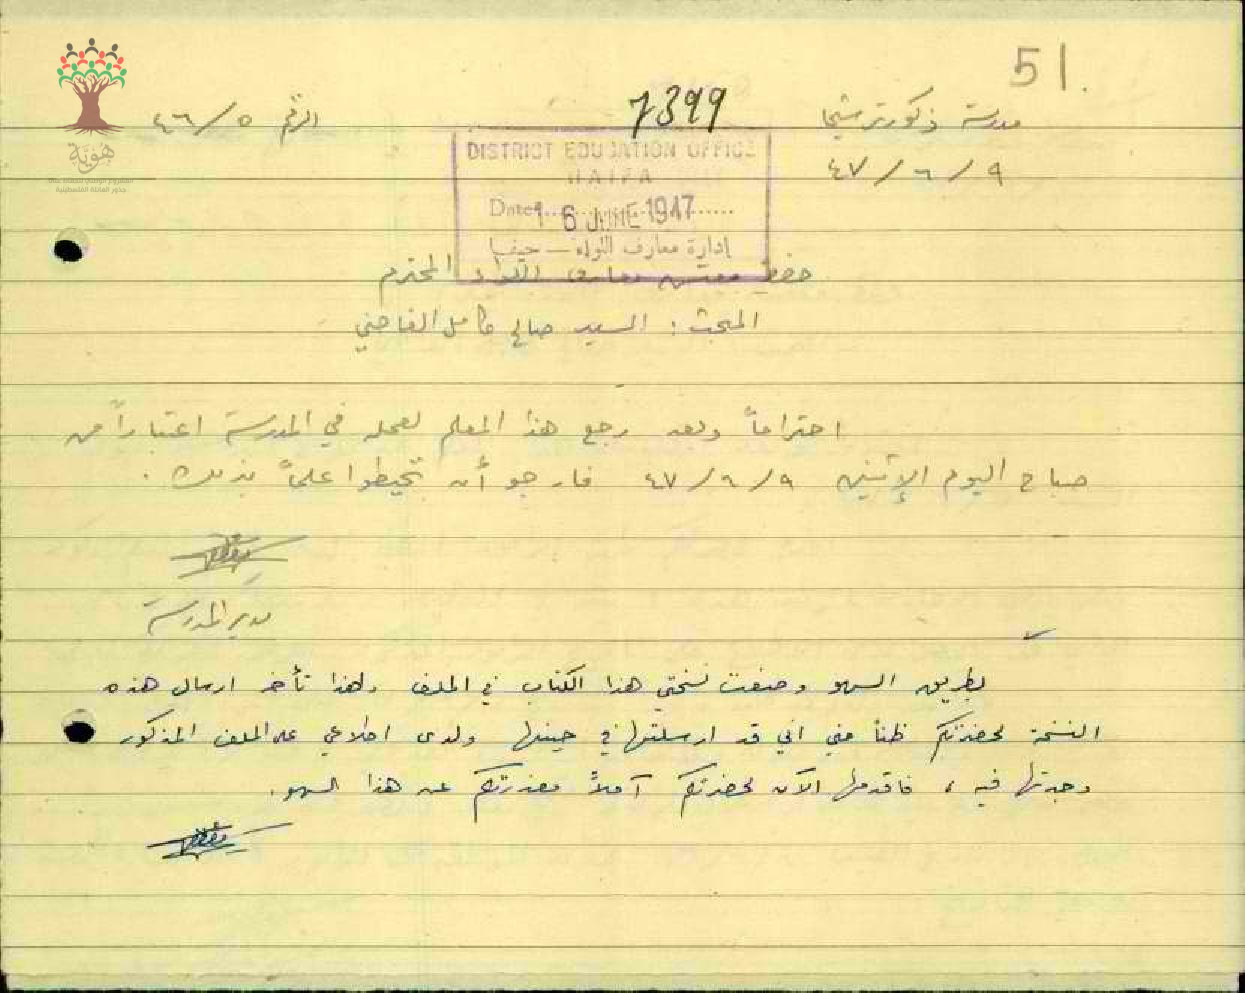 51.
مدرسة ذكور ترشيحا
الرقم ٤٦/٥
7399
٤٧/٦/٩
DISTRICT EDUCATION OFFICE
HAIFA
Date 16 JUNE 1947
إدارة معارف اللواء — حيفا
حضرة مفتش معارف اللواء المحترم
المبحث : السيد صالح كامل القاضي
احتراماً وبعد رجع هذا المعلم لعمله في المدرسة اعتباراً من
صباح اليوم الإثنين ٤٧/٦/٩ فارجو أن تحيطوا علماً بذلك .
مدير المدرسة
بطريق السهو وضعت نسختي هذا الكتاب في الملف ولهذا تأخر ارسال هذه
النسخة لحضرتكم ظناً مني اني قد ارسلتها في حينها ولدى اطلاعي على الملف المذكور
وجدتها فيه ، فاقدمها الآن لحضرتكم آملاً معذرتكم عن هذا السهو .
هوية
جذور العائلة الفلسطينية